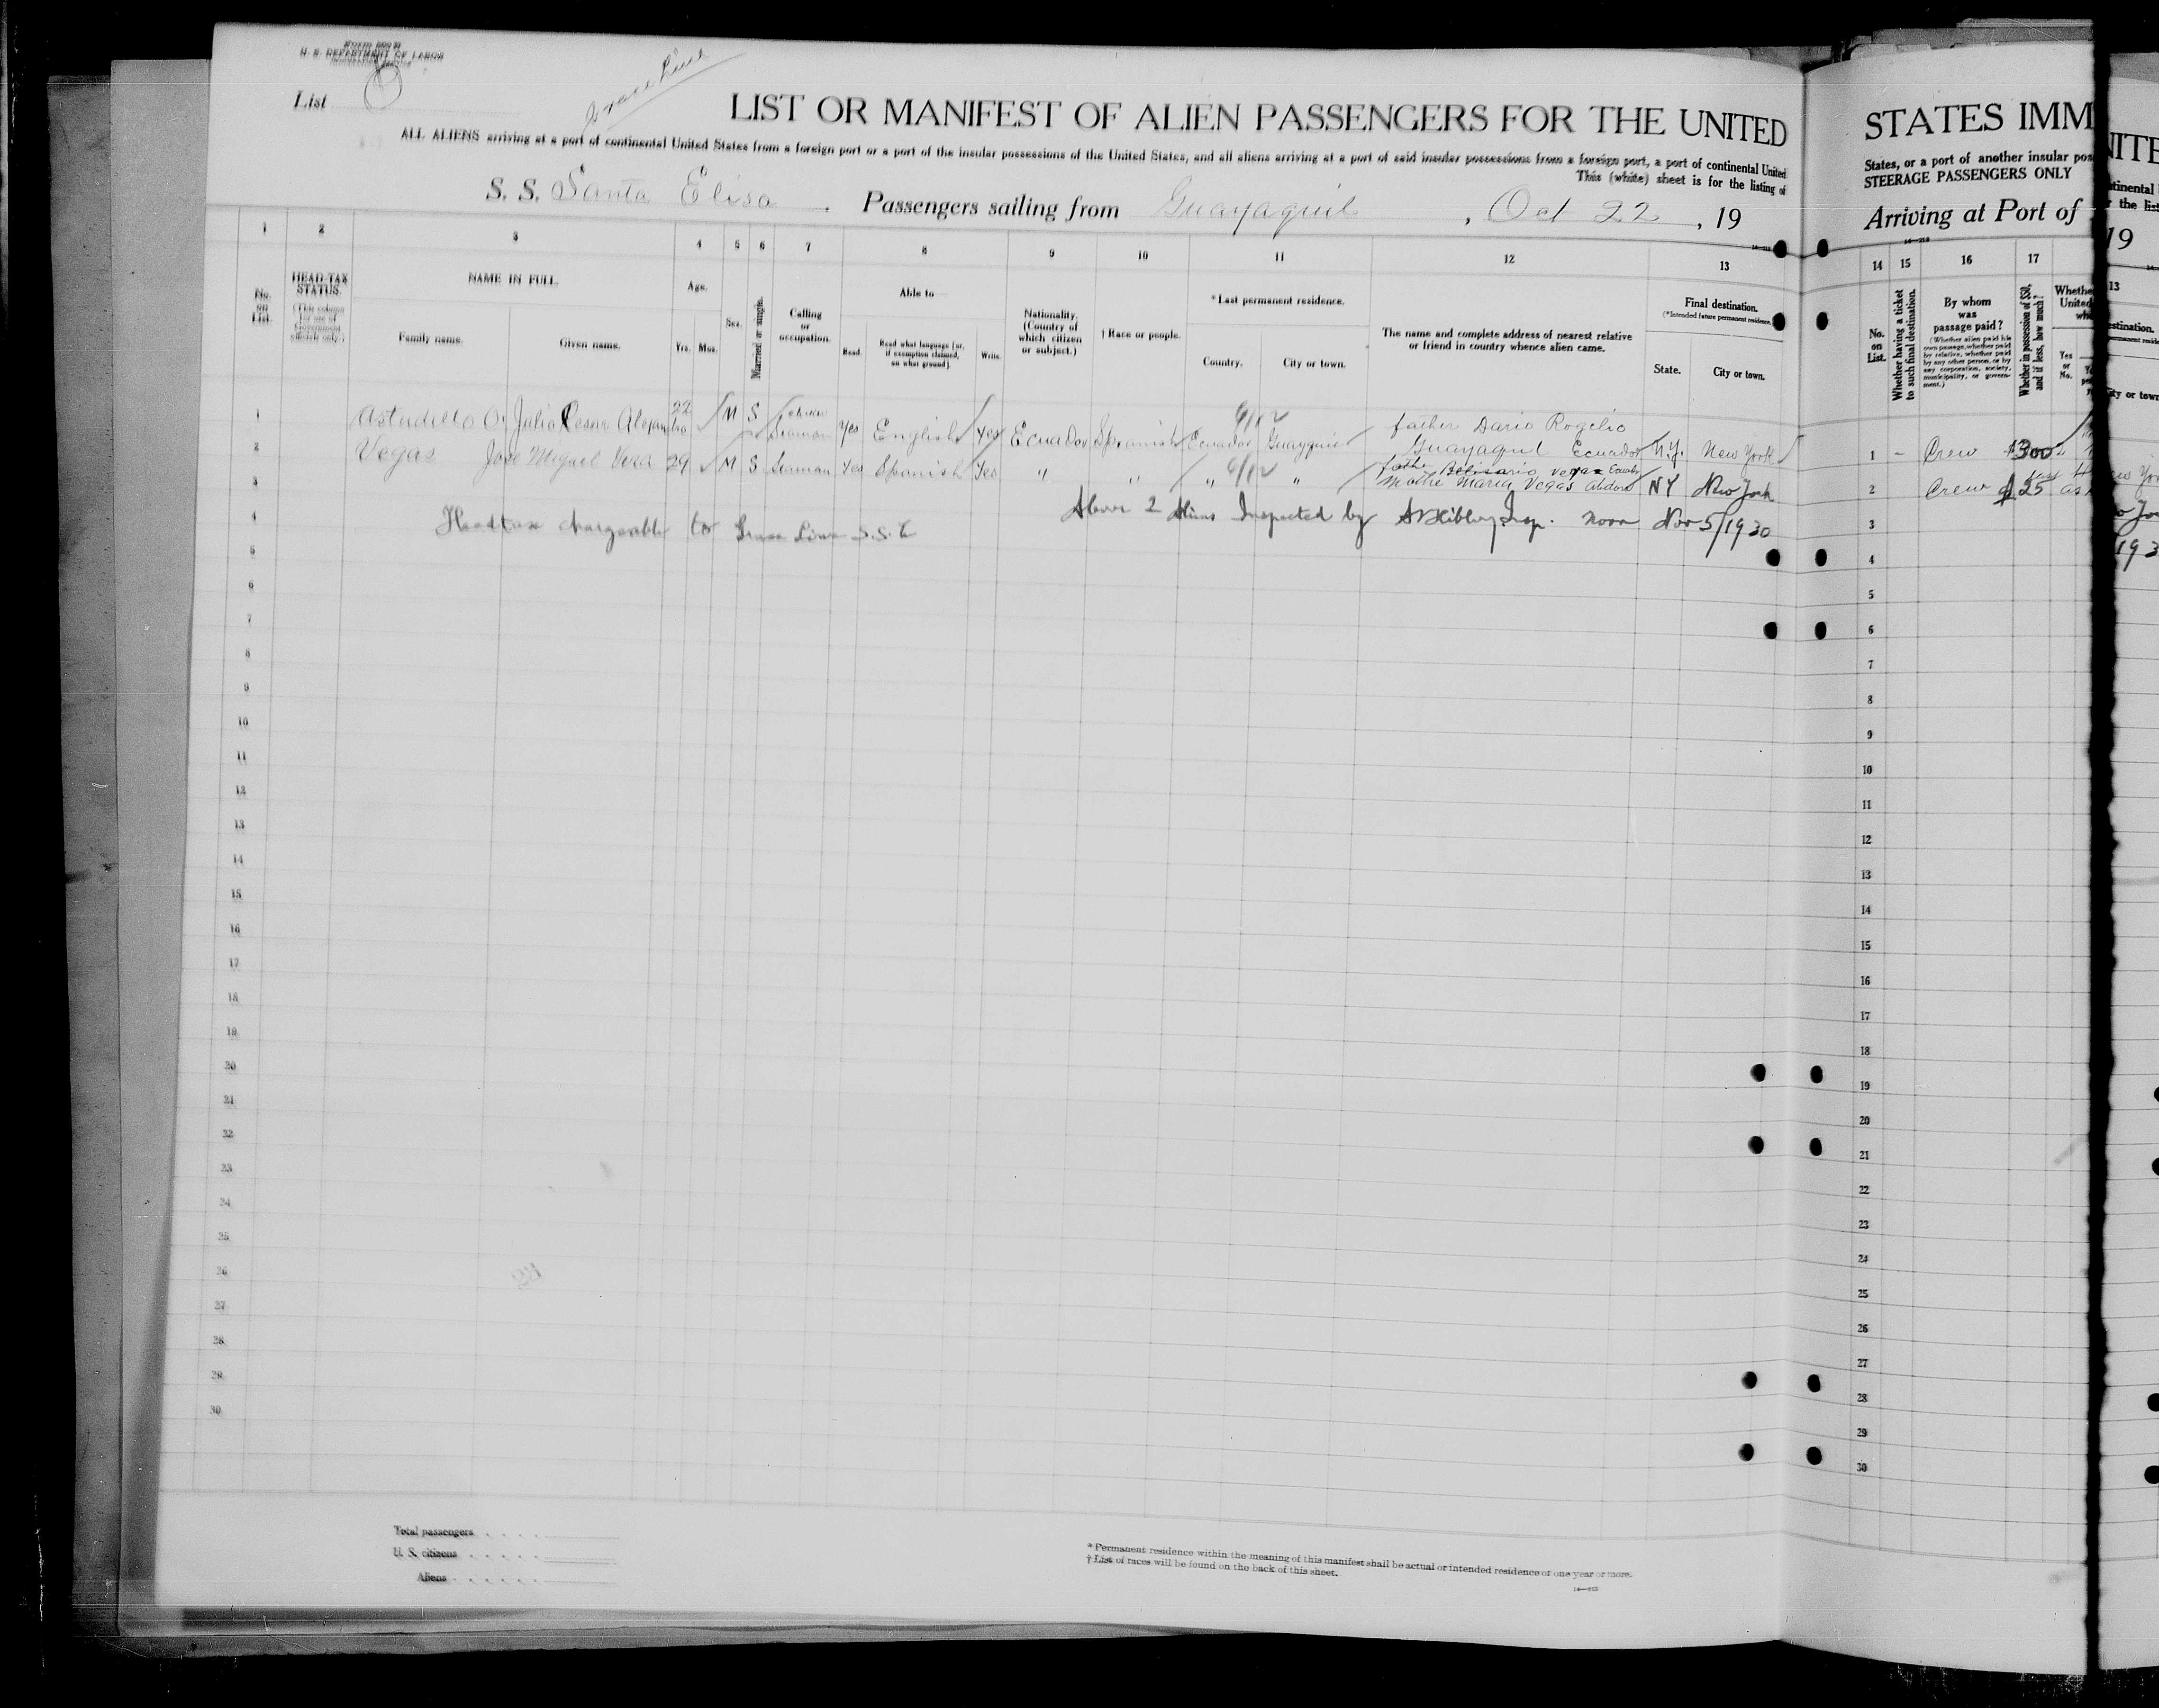 Form 500 B
U. S. DEPARTMENT OF LABOR
List
Grace Line
LIST OR MANIFEST OF ALIEN PASSENGERS FOR THE UNITED
ALL ALIENS arriving at a port of continental United States from a foreign port or a port of the insular possessions of the United States, and all aliens arriving at a port of said insular possessions from a foreign port, a port of continental United
This (white) sheet is for the listing of
S. S. Santa Elisa . Passengers sailing from Guayaquil , Oct 22 , 19
1 2 3 4 5 6 7 8 9 10 11 12 13
No. on List.
HEAD-TAX STATUS. (This column for use of Government officials only.)
NAME IN FULL.
Family name. Given name.
Age.
Yrs. Mos.
Sex.
Married or single.
Calling or occupation.
Able to—
Read. Read what language [or, if exemption claimed, on what ground]. Write.
Nationality. (Country of which citizen or subject.)
† Race or people.
* Last permanent residence.
Country. City or town.
The name and complete address of nearest relative or friend in country whence alien came.
Final destination.
(* Intended future permanent residence.)
State. City or town.
1 Astudillo O. Julio Cesar 22 M S Seaman Yes English Yes Ecuador Spanish Ecuador Guayaquil father Dario Rogelio
Guayaquil Ecuador N.Y. New York
2 Vegas Jose Miguel Vera 29 M S Seaman Yes Spanish Yes " " " " father Belisario Vegas
Maria Vegas NY New York
3 Above 2 Aliens Inspected by Insp. Nov 5/1930
4 Headtax chargeable to Grace Line S.S. Co
5
6
7
8
9
10
11
12
13
14
15
16
17
18
19
20
21
22
23
24
25
26
27
28
29
30
Total passengers
U. S. citizens
Aliens
* Permanent residence within the meaning of this manifest shall be actual or intended residence of one year or more.
† List of races will be found on the back of this sheet.
STATES IMM
States, or a port of another insular pos
STEERAGE PASSENGERS ONLY
Arriving at Port of
14 15 16 17
No. on List.
Whether having a ticket to such final destination.
By whom was passage paid?
(Whether alien paid his own passage, whether paid by relative, whether paid by any other person, or by any corporation, society, municipality, or government.)
Whether in possession of $50, and if less, how much?
Yes or No.
1 – Crew $300
2 Crew $25
3
4
5
6
7
8
9
10
11
12
13
14
15
16
17
18
19
20
21
22
23
24
25
26
27
28
29
30